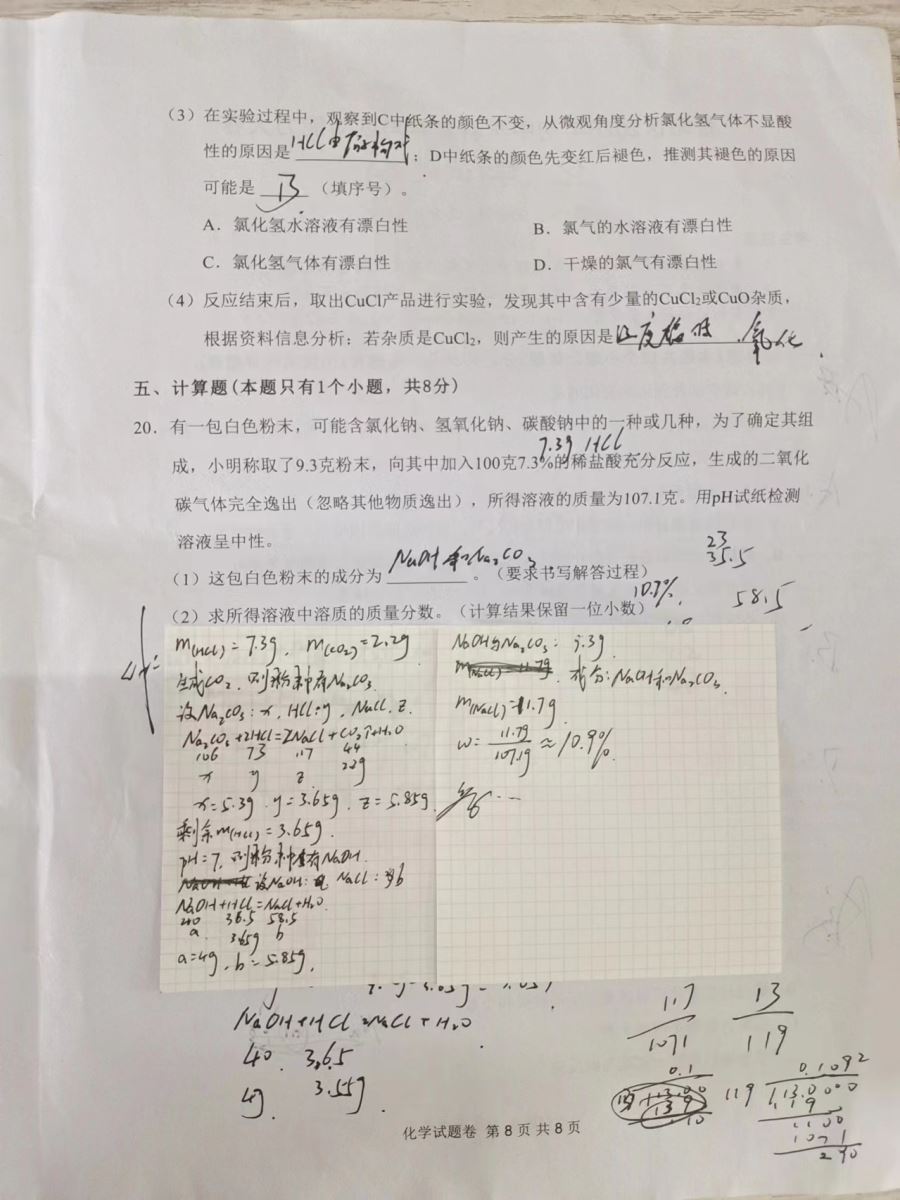 （3）在实验过程中，观察到C中纸条的颜色不变，从微观角度分析氯化氢气体不显酸
性的原因是HCl由分子构成；D中纸条的颜色先变红后褪色，推测其褪色的原因
可能是 B （填序号）。
A．氯化氢水溶液有漂白性 B．氯气的水溶液有漂白性
C．氯化氢气体有漂白性 D．干燥的氯气有漂白性
（4）反应结束后，取出CuCl产品进行实验，发现其中含有少量的CuCl₂或CuO杂质，
根据资料信息分析：若杂质是CuCl₂，则产生的原因是 氧化
五、计算题（本题只有1个小题，共8分）
20．有一包白色粉末，可能含氯化钠、氢氧化钠、碳酸钠中的一种或几种，为了确定其组
7.3g HCl
成，小明称取了9.3克粉末，向其中加入100克7.3%的稀盐酸充分反应，生成的二氧化
碳气体完全逸出（忽略其他物质逸出），所得溶液的质量为107.1克。用pH试纸检测
溶液呈中性。
23
35.5
58.5
（1）这包白色粉末的成分为NaOH和Na₂CO₃。（要求书写解答过程）
（2）求所得溶液中溶质的质量分数。（计算结果保留一位小数）
10.9%
m(HCl)=7.3g，m(CO₂)=2.2g
生成CO₂，则粉末中有Na₂CO₃
设Na₂CO₃：x，HCl：y，NaCl：z
Na₂CO₃+2HCl=2NaCl+CO₂↑+H₂O
106 73 117 44
x y z 2.2g
x=5.3g y=3.65g z=5.85g
剩余m(HCl)=3.65g
pH=7，则粉末中含有NaOH
设NaOH：a，NaCl：b
NaOH+HCl=NaCl+H₂O
40 36.5 58.5
a 3.65g b
a=4g，b=5.85g
NaOH与Na₂CO₃：9.3g
成分：NaOH和Na₂CO₃
m(NaCl)=11.7g
w=11.7g/107.1g≈10.9%
答…
NaOH+HCl=NaCl+H₂O
40 36.5
4g 3.55g
117 13
1071 119
0.1 0.1092
119 13.0000
119
1100
1071
290
化学试题卷 第8页 共8页